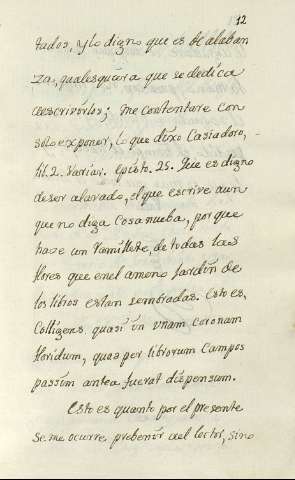 12
tados, y lo digno que es de alaban
za, qualesquiera que se dedica
a escrivirlos; me contentare con
solo exponer, lo que dixo Casiadoro,
lib. 2. Variar. Epist. 25. Que es digno
de ser alavado, el que escrive aun
que no diga cosa nueba, por que
hace un Ramillete, de todas las
flores que en el ameno Jardin de
los libros estan sembradas. Esto es,
Colligens quasi in unam coronam
floridum, quae per librorum Campos
passim antea fuerat dispensum.
Esto es quanto por el presente
se me ocurre prebenir al lector, sino